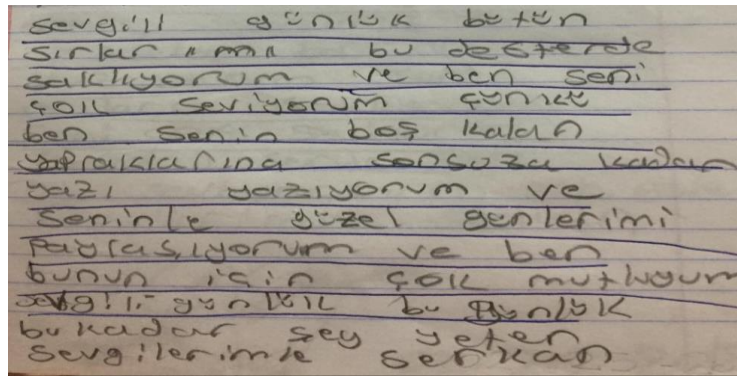 sevgili günlük bütün
sırlar "ımıı bu desterde
saklıyorum ve ben seni
çok seviyorum çünkü
ben senin boş kalan
yapraklarına sonsuza kadar
yazı yazıyorum ve
seninle güzel günlerimi
paylaşıyorum ve ben
bunun için çok mutluyum
sevgili günlük bu günlük
bu kadar şey yeter
sevgilerimle serkan